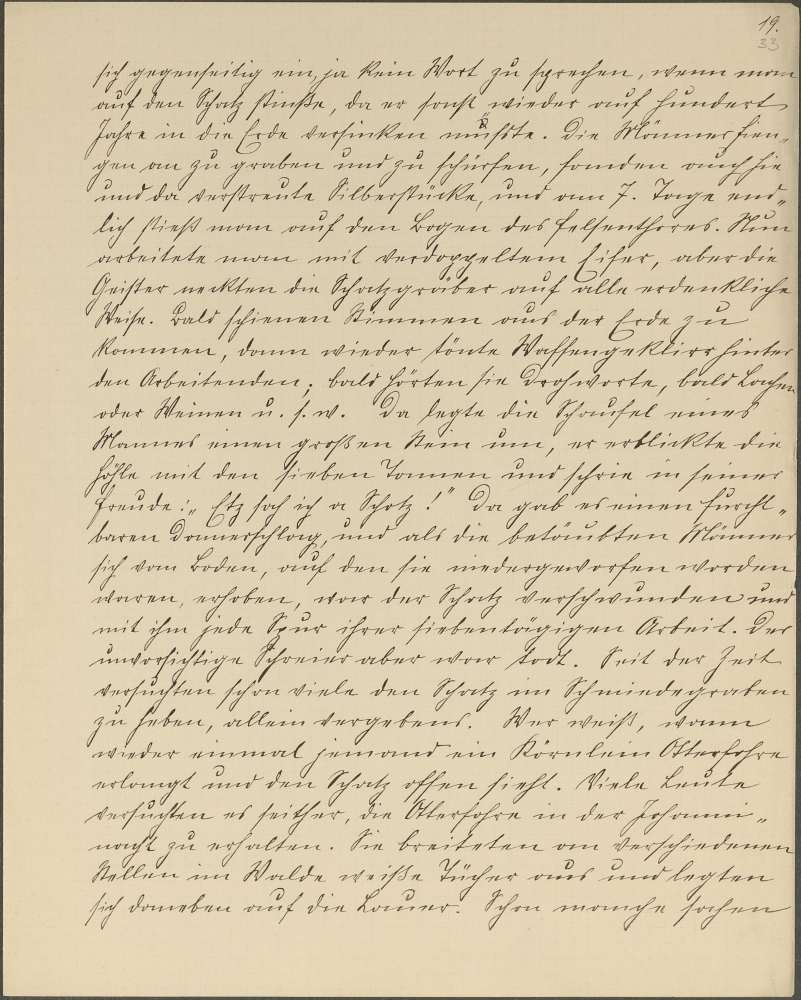 19.
33
sich gegenseitig ein, ja kein Wort zu sprechen, wenn man
auf den Schatz stieße, da er sonst wieder auf hundert
Jahre in die Erde versinken müßte. Die Männer fien„
gen an zu graben und zu schürfen, fanden auch hie
und da verstreute Silberstücke, und am 7. Tage end„
lich stieß man auf den Bogen des Felsenthores. Nun
arbeitete man mit verdoppeltem Eifer, aber die
Geister neckten die Schatzgräber auf alle erdenkliche
Weise. Bald schienen Stimmen aus der Erde zu
kommen, dann wieder tönte Waffengeklirr hinter
den Arbeitenden; bald hörten sie Drohworte, bald Lachen
oder Weinen u. s. w. Da legte die Schaufel eines
Mannes einen großen Stein um, er erblickte die
Höhle mit den sieben Tonnen und schrie in seiner
Freude: „Etz sach ich a Schotz!" Da gab es einen furcht„
baren Donnerschlag, und als die betäubten Männer
sich vom Boden, auf den sie niedergeworfen worden
waren, erhoben, war der Schatz verschwunden und
mit ihm jede Spur ihrer siebentägigen Arbeit. Der
unvorsichtige Schreier aber war todt. Seit der Zeit
versuchten schon viele den Schatz im Schmiedegraben
zu heben, allein vergebens. Wer weiß, wann
wieder einmal jemand ein Körnlein Otterfohre
erlangt und den Schatz offen sieht. Viele Leute
versuchten es seither, die Otterfohre in der Johanni„
nacht zu erhalten. Sie breiteten an verschiedenen
Stellen im Walde weiße Tücher aus und legten
sich daneben auf die Lauer. Schon manche sahen